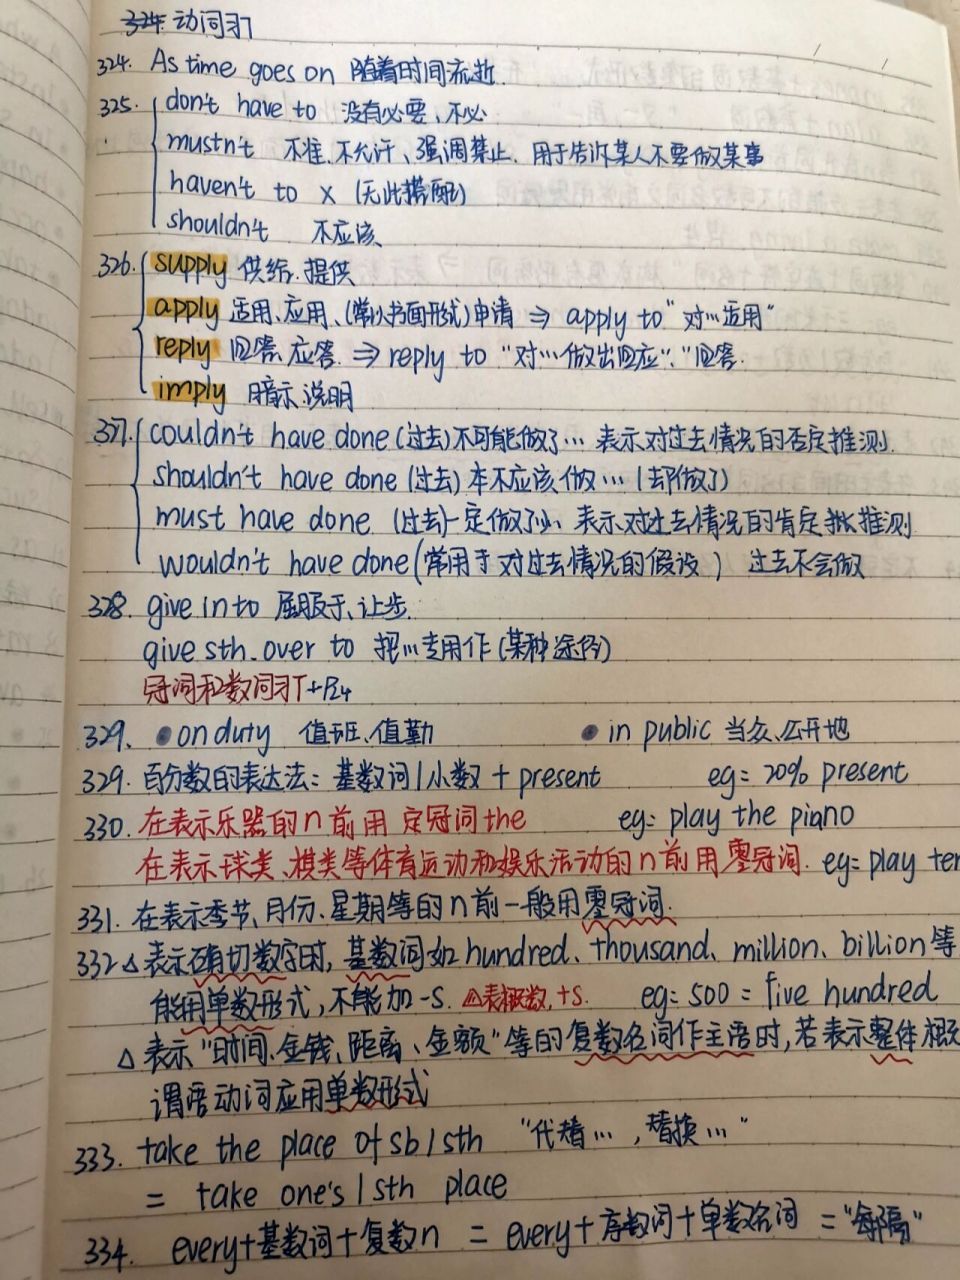 动词习T
324. As time goes on 随着时间流逝.
325. don't have to 没有必要、不必
mustn't 不准、不允许、强调禁止. 用于告诉某人不要做某事
haven't to × (无此搭配)
shouldn't 不应该
326. supply 供给、提供
apply 适用、应用、(常以书面形式)申请 ⇒ apply to "对…适用"
reply 回答、应答. ⇒ reply to "对…做出回应"、"回答.
imply 暗示、说明
327. couldn't have done (过去)不可能做了… 表示对过去情况的否定推测.
shouldn't have done (过去) 本不应该做… (却做了)
must have done (过去)一定做了… 表示对过去情况的肯定推测
wouldn't have done (常用于对过去情况的假设) 过去不会做
328. give in to 屈服于、让步.
give sth. over to 把…专用作(某种途径)
冠词和数词习T+P24
329. • on duty 值班、值勤 • in public 当众、公开地
329. 百分数的表达法: 基数词/小数 + present eg: 20% present
330. 在表示乐器的n前用 定冠词the eg: play the piano
在表示球类、棋类等体育运动和娱乐活动的n前用零冠词. eg: play
331. 在表示季节、月份、星期等的n前一般用零冠词.
332 △表示确切数字时, 基数词如hundred、thousand、million、billion等
能用单数形式, 不能加-s. △表概数, +s. eg: 500 = five hundred
△表示"时间、金钱、距离、金额"等的复数名词作主语时, 若表示整体概
谓语动词应用单数形式
333. take the place of sb/sth "代替…, 替换…"
= take one's/sth place
334. every+基数词+复数n = every+序数词+单数名词 = "每隔"